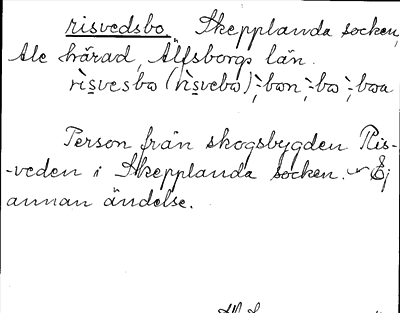 risvedsbo. Skepplanda socken,
Ale härad, Älfsborgs län.
rìsvesbω (rìsvebω); -bωn; -bω; -bωa
Person från skogsbygden Ris-
-veden i Skepplanda socken. ~ Ej
annan ändelse.